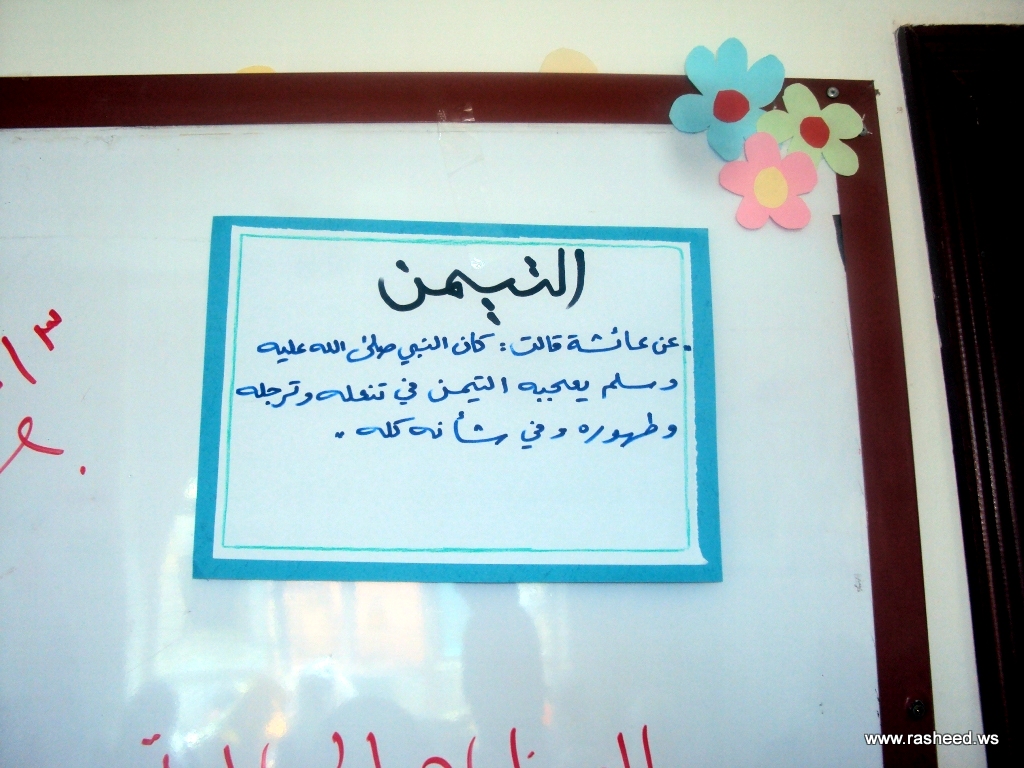 التيمن
. عن عائشة قالت : كان النبي صلى الله عليه
وسلم يعجبه التيمن في تنعله وترجله
وطهوره وفي شأنه كله .
www.rasheed.ws